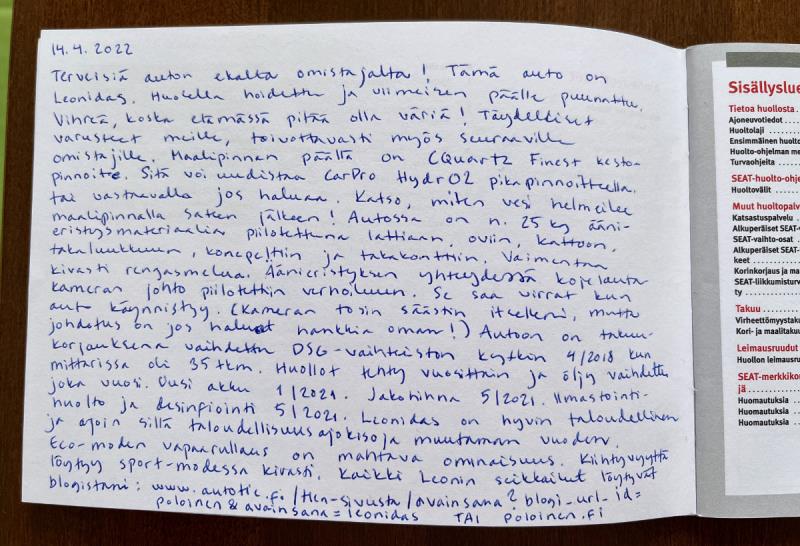 14.4.2022
Terveisiä auton ekalta omistajalta! Tämä auto on
Leonidas. Huolella hoidettu ja viimeisen päälle puunattu.
Vihreä, koska elämässä pitää olla väriä! Täydelliset
varusteet meille, toivottavasti myös seuraaville
omistajille. Maalipinnan päällä on CQuartz Finest kesto-
pinnoite. Sitä voi uudistaa CarPro HydrO2 pikapinnoitteella
tai vastaavalla jos haluaa. Katso, miten vesi helmeilee
maalipinnalla sateen jälkeen! Autossa on n. 25 kg ääni-
eristysmateriaalia piilotettuna lattiaan, oviin, kattoon,
takaluukkuun, konepeltiin ja takakonttiin. Vaimentaa
kivasti rengasmelua. Äänieristyksen yhteydessä kojelauta
kameran johto piilotettiin verhoiluun. Se saa virrat kun
auto käynnistyy. (Kameran tosin säästin itselleni, mutta
johdotus on jos haluat hankkia oman!) Autoon on takuu-
korjauksena vaihdettu DSG-vaihteiston kytkin 4/2018 kun
mittarissa oli 35 tkm. Huollot tehty vuosittain ja öljy vaihdettu
joka vuosi. Uusi akku 1/2021. Jakohihna 5/2021. Ilmastointi-
huolto ja desinfiointi 5/2021. Leonidas on hyvin taloudellinen
ja ajoin sillä taloudellisuusajokisoja muutaman vuoden.
Eco-moden vapaarullaus on mahtava ominaisuus. Kiihtyvyyttä
löytyy sport-modessa kivasti. Kaikki Leonin seikkailut löytyvät
blogistani: www.autotie.fi/tien-sivusta/avainsana?blogi_url_id=
poloinen&avainsana=leonidas TAI poloinen.fi
Sisällyslue
Tietoa huollosta
Ajoneuvotiedot
Huoltolaji
Ensimmäinen huolto
Huolto-ohjelman me
Turvaohjeita
SEAT-huolto-ohje
Huoltovälit
Muut huoltopalv
Katsastuspalvelu
Alkuperäiset SEAT-
SEAT-vaihto-osat
Alkuperäiset SEAT-
keet
Korinkorjaus ja ma
SEAT-liikkumisturv
ty
Takuu
Virheettömyystaku
Kori- ja maalitakuu
Leimausruudut
Huollon leimausru
SEAT-merkkikor
jä
Huomautuksia
Huomautuksia
Huomautuksia